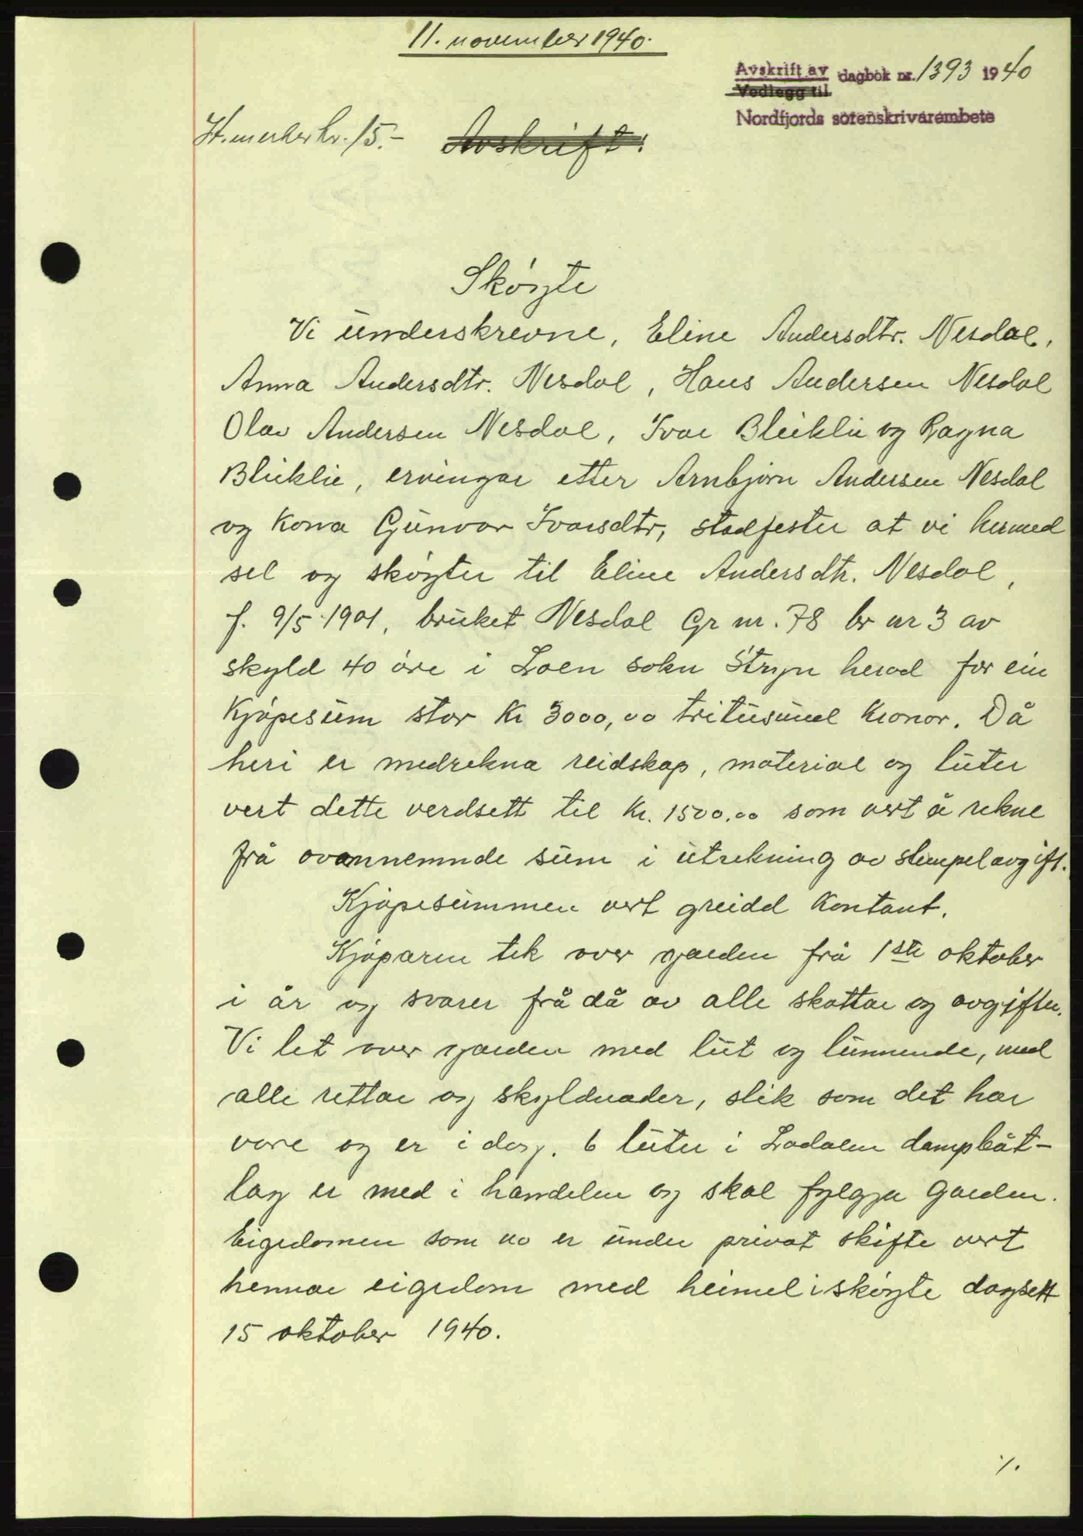 11. november 1940.
Avskrift av dagbok nr. 1393 1940
Vedlegg til
Nordfjords sorenskrivarembete
St.merker kr. 15.-
Avskrift.
Skøyte
Vi underskrevne, Eline Andersdtr. Nesdal,
Anna Andersdtr. Nesdal, Hans Andersen Nesdal
Olav Andersen Nesdal, Ivar Bleiklie og Ragna
Bleiklie, ervingar etter Arnbjørn Andersen Nesdal
og Kona Gunvor Ivarsdtr, stadfester at vi hermed
sel og skøyter til Eline Andersdtr. Nesdal,
f. 9/5 1901, bruket Nesdal Gr nr. 78 br nr 3 av
skyld 40 øre i Loen sokn Stryn herad for ein
Kjøpesum stor Kr 3000,00 tritusund Kronor. Då
heri er medrekna reidskap, material og luter
vert dette verdsett til Kr. 1500.00 som vert å rekne
frå ovannemnde sum i utrekning av stempelavgift.
Kjøpesummen vert greidd Kontant.
Kjøparen tek over garden frå 1ste oktober
i år og svarer frå då av alle skattar og avgifter.
Vi let over garden med lut og lunnende, med
alle rettar og skyldnader, slik som det har
vore og er i dag. 6 luter i Lodalen dampbåt-
lag er med i handelen og skal fylgja Garden.
Eigedomen som no er under privat skifte vert
hennar eigedom med heimel i skøyte dagsett
15 oktober 1940.
./.